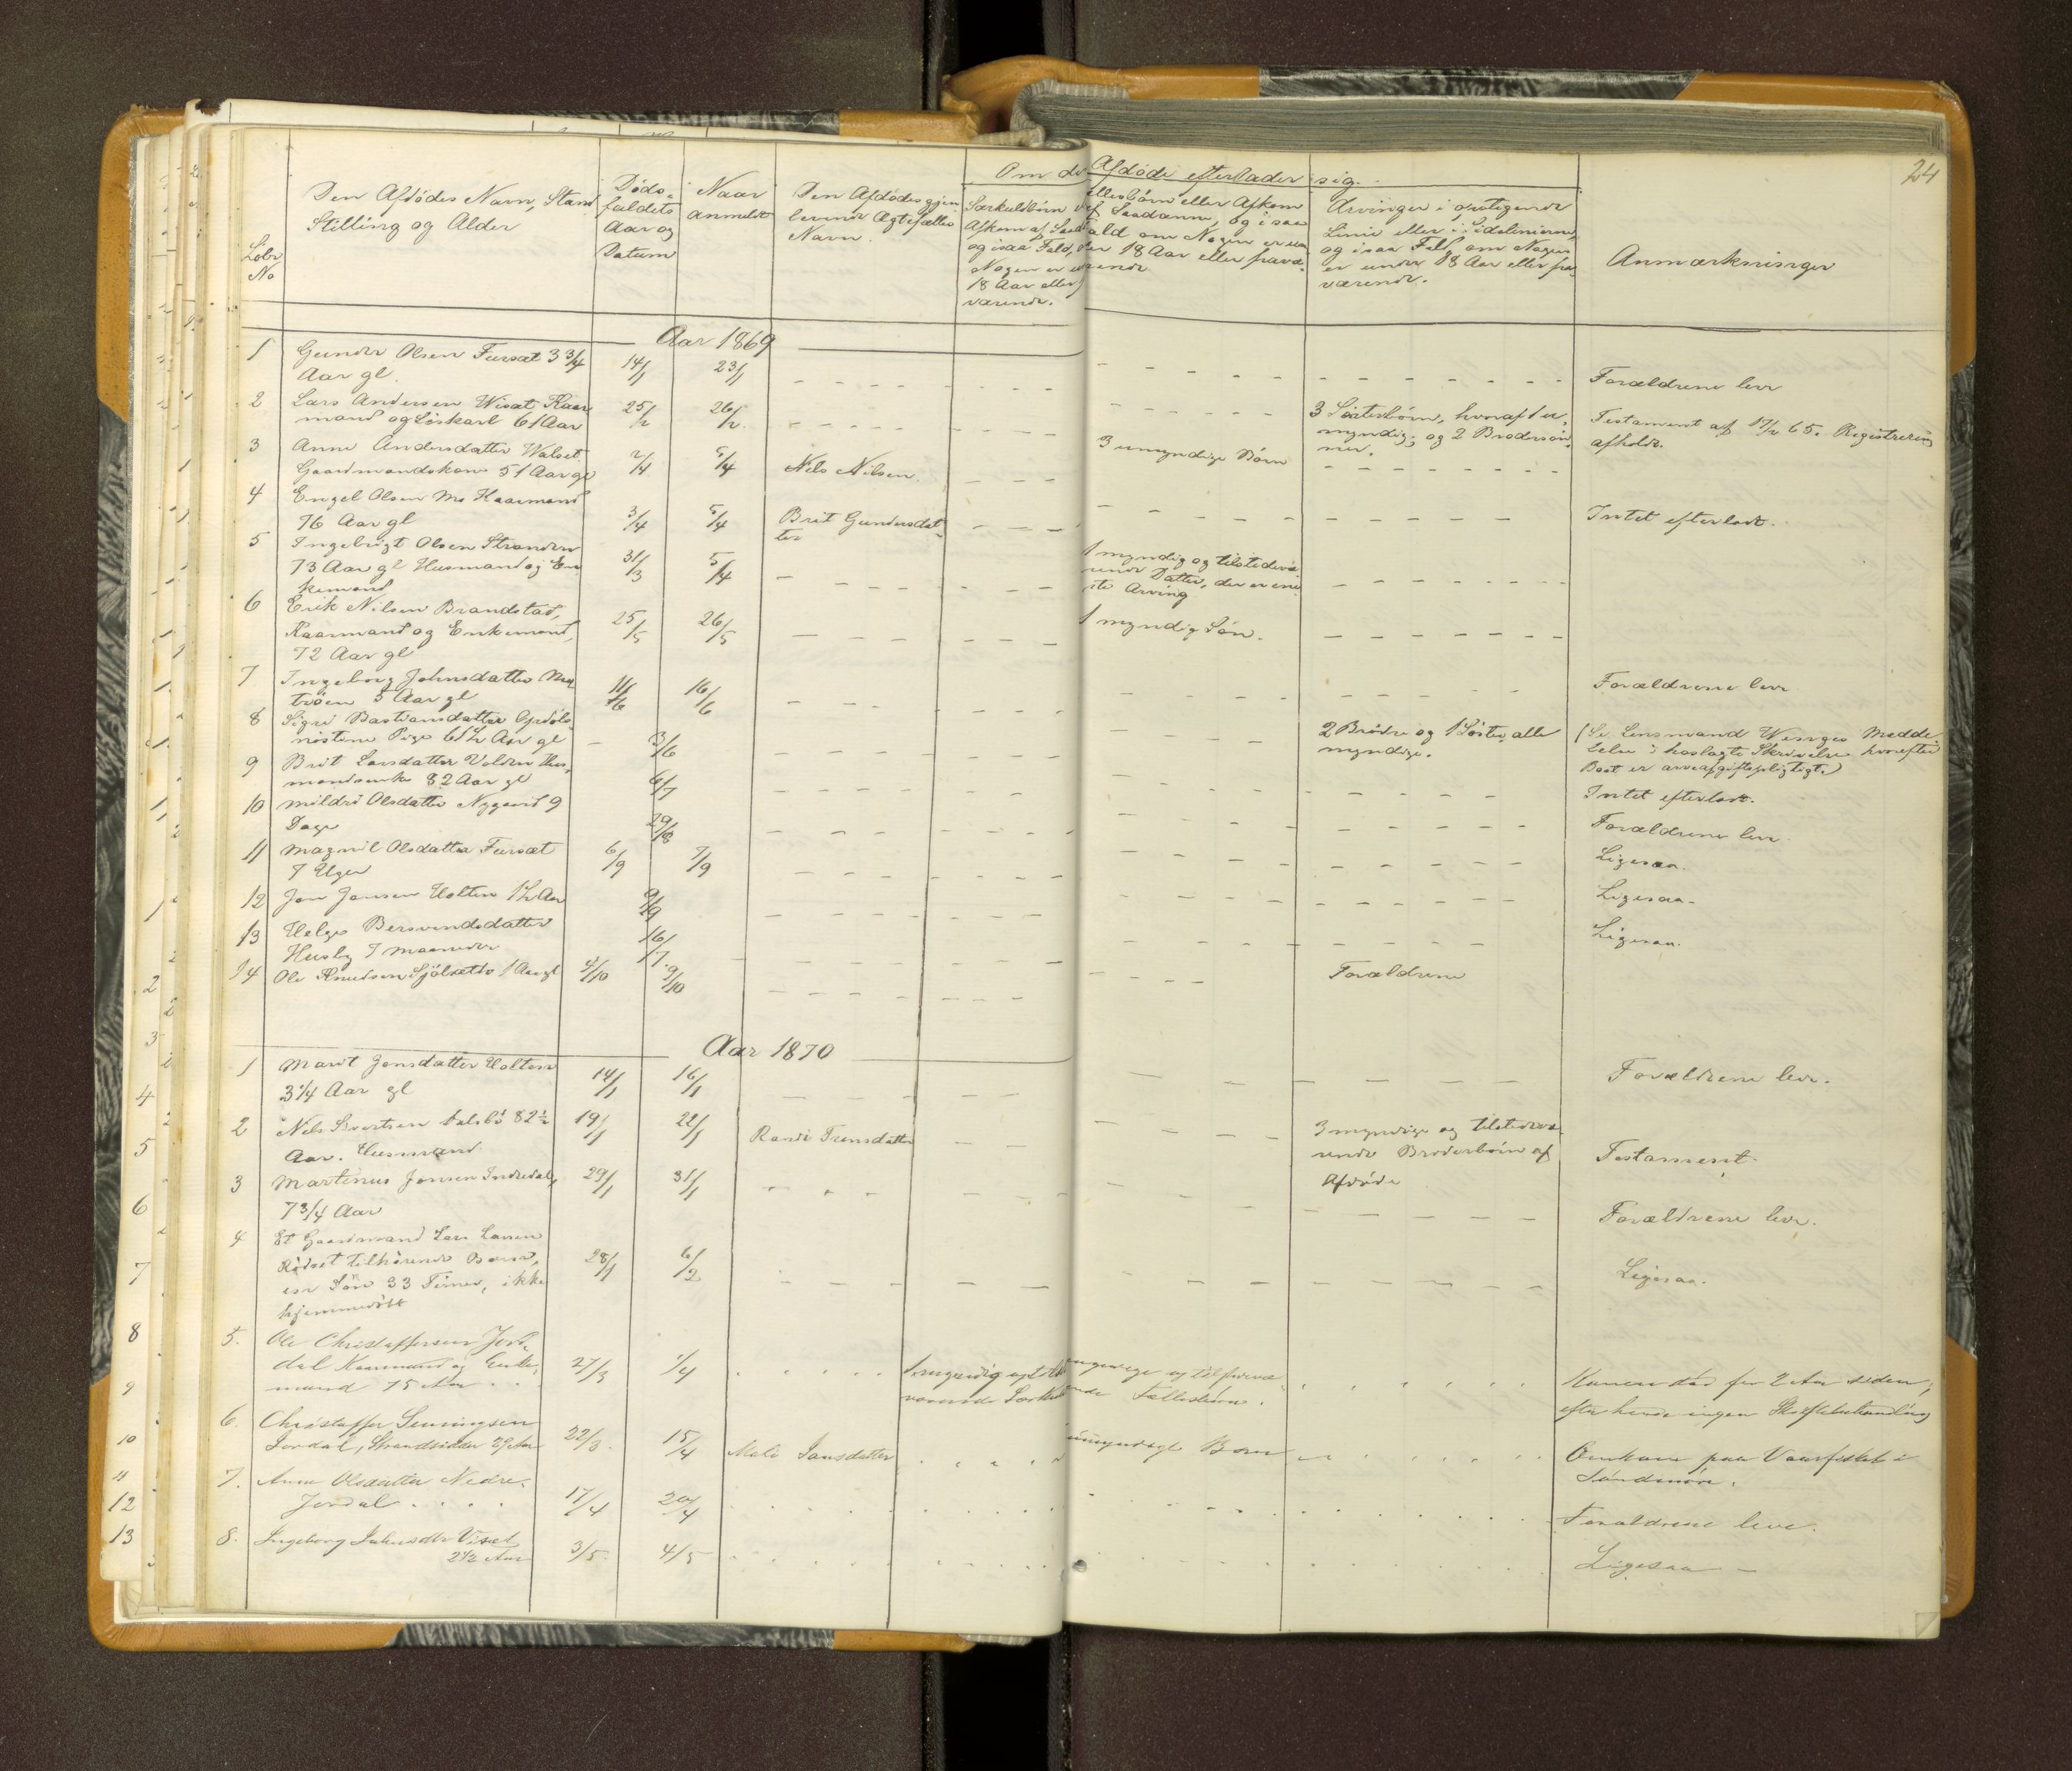 24
Om de Afdöde efterlader sig.
Löbe
No
Den Afdödes Navn, Stand
Stilling og Alder
Döds-
faldets
Aar og
Datum
Naar
anmeldt
Den Afdödes gjen
levende Ægtefælles
Navn.
Særkuldbörn
Afkom af
og i saa Fald,
Nogen er
18 Aar eller
værende.
ellesbörn eller Afkom
af Saadanne, og i saa
ald om Nogen er un
der 18 Aar eller fravæ-
rende
Arvinger i opstigende
Linie eller i Sidelinierne,
og i saa Fald, om Nogen
er under 18 Aar eller fra-
værende.
Anmærkninger
Aar 1869
1 Gunder Olsen Fursæt 3 3/4
Aar gl. 14/1 23/1 Forældrene leve
2 Lars Andersen Wisæt Kaar
mand og Löskarl 61 Aar 25/2 26/2. 3 Sösterbörn, hvoraf 1 er
myndig, og 2 Brodersön
ner. Testament af 17/2 65. Registrering
afholdt.
3 Anne Andersdatter Walset
Gaardmandskone 51 Aar gl 2/4 5/4 Nils Nilsen. 3 umyndige Börn
4 Engel Olsen Mo Kaarmand
76 Aar gl 3/4 5/4 Brit Gundersdat-
ter Intet efterladt.
5 Ingebrigt Olsen Stranden
73 Aar gl Husmand og En-
kemand 31/3 5/4 1 myndig og tilstedevæ
rende Datter, der er ene-
ste Arving
6 Erik Nilsen Brandstad,
Kaarmand og Enkemand,
72 Aar gl 25/5 26/5 1 myndig Sön.
7 Ingeborg Johnsdatter
tröen 5 Aar gl 11/6 16/6 Forældrene leve
8 Sigri Bastiansdatter
Pige 61 1/2 Aar gl 3/6 2 Brödre og 1 Söster, alle
myndige. (Se Lensmand Winges Medde-
lelse i hoslagte Skrivelse hvorefter
Boet er arveafgiftspligtigt.)
9 Brit Larsdatter Volden Hus-
mandsenke 82 Aar gl 6/7 Intet efterladt.
10 Mildri Olsdatter Nygaard 9
Dage 29/8 Forældrene leve
11 Magnil Olsdatter Fursæt
7 Uger 6/9 7/9 Ligesaa.
12 Jon Jonsen Holten 1 1/2 Aar 9/9 Ligesaa.
13 Helge Bersvendsdatter
Husby 7 Maaneder 16/ Ligesaa.
14 Ole Knudsen Sjölsetto 1 Aar gl 4/10 9/10 Forældrene
Aar 1870
1 Marit Jonsdatter Holten
3 1/4 Aar gl 14/1 16/1 Forældrene leve.
2 Nils Sivertsen 82 1/2
Aar. Husmand 19/1 22/1 Randi Trondsdatter 3 myndige og tilstedevæ-
rende Broderbörn af
Afdöde Testament.
3 Martinus Jonsen Indredal,
7 3/4 Aar 29/1 31/1 Forældrene leve.
4 Et Gaardmand Lars Larsen
Rödset tilhörende Barn,
en Sön 33 Timer, ikke
hjemmedöbt 28/1 6/2 Ligesaa.
5. Ole Christoffersen Jor-
dal Kaarmand og Enke-
mand 75 Aar 27/3 1/4 1 myndig og
værende og tilfravæ
ende Fællesbörn. Konen död for 2 Aar siden,
efter hende ingen Skiftebehandling
6. Christoffer Simingsen
Jordal, Strandsidder 29 Aar 22/3. 15/4 Mali Jonsdatter umyndigt Barn Omkom paa Vaarfisket i
Söndmöre.
7. Anne Olsdatter Nedre-
Jordal 17/4 20/4 Forældrene leve.
8. Ingeborg Johnsdtr Viset
2 1/2 Aar 3/5 4/5 Ligesaa